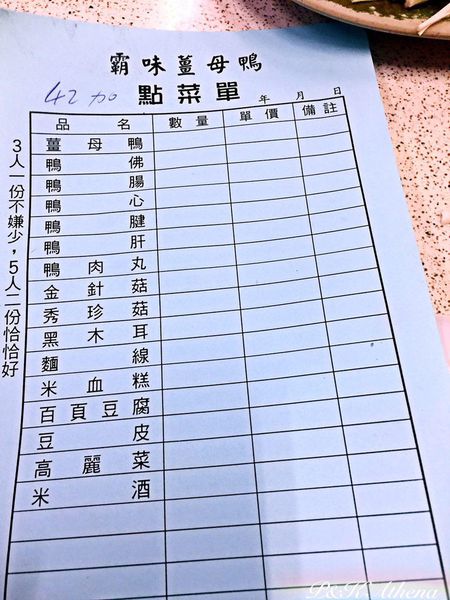 霸味薑母鴨
42 加 點菜單
年 月 日
品名 數量 單價 備註
薑母鴨
鴨佛
鴨腸
鴨心
鴨腱
鴨肝
鴨肉丸
金針菇
秀珍菇
黑木耳
麵線
米血糕
百頁豆腐
豆皮
高麗菜
米酒
3人一份不嫌少，5人二份恰恰好
P&K Athena